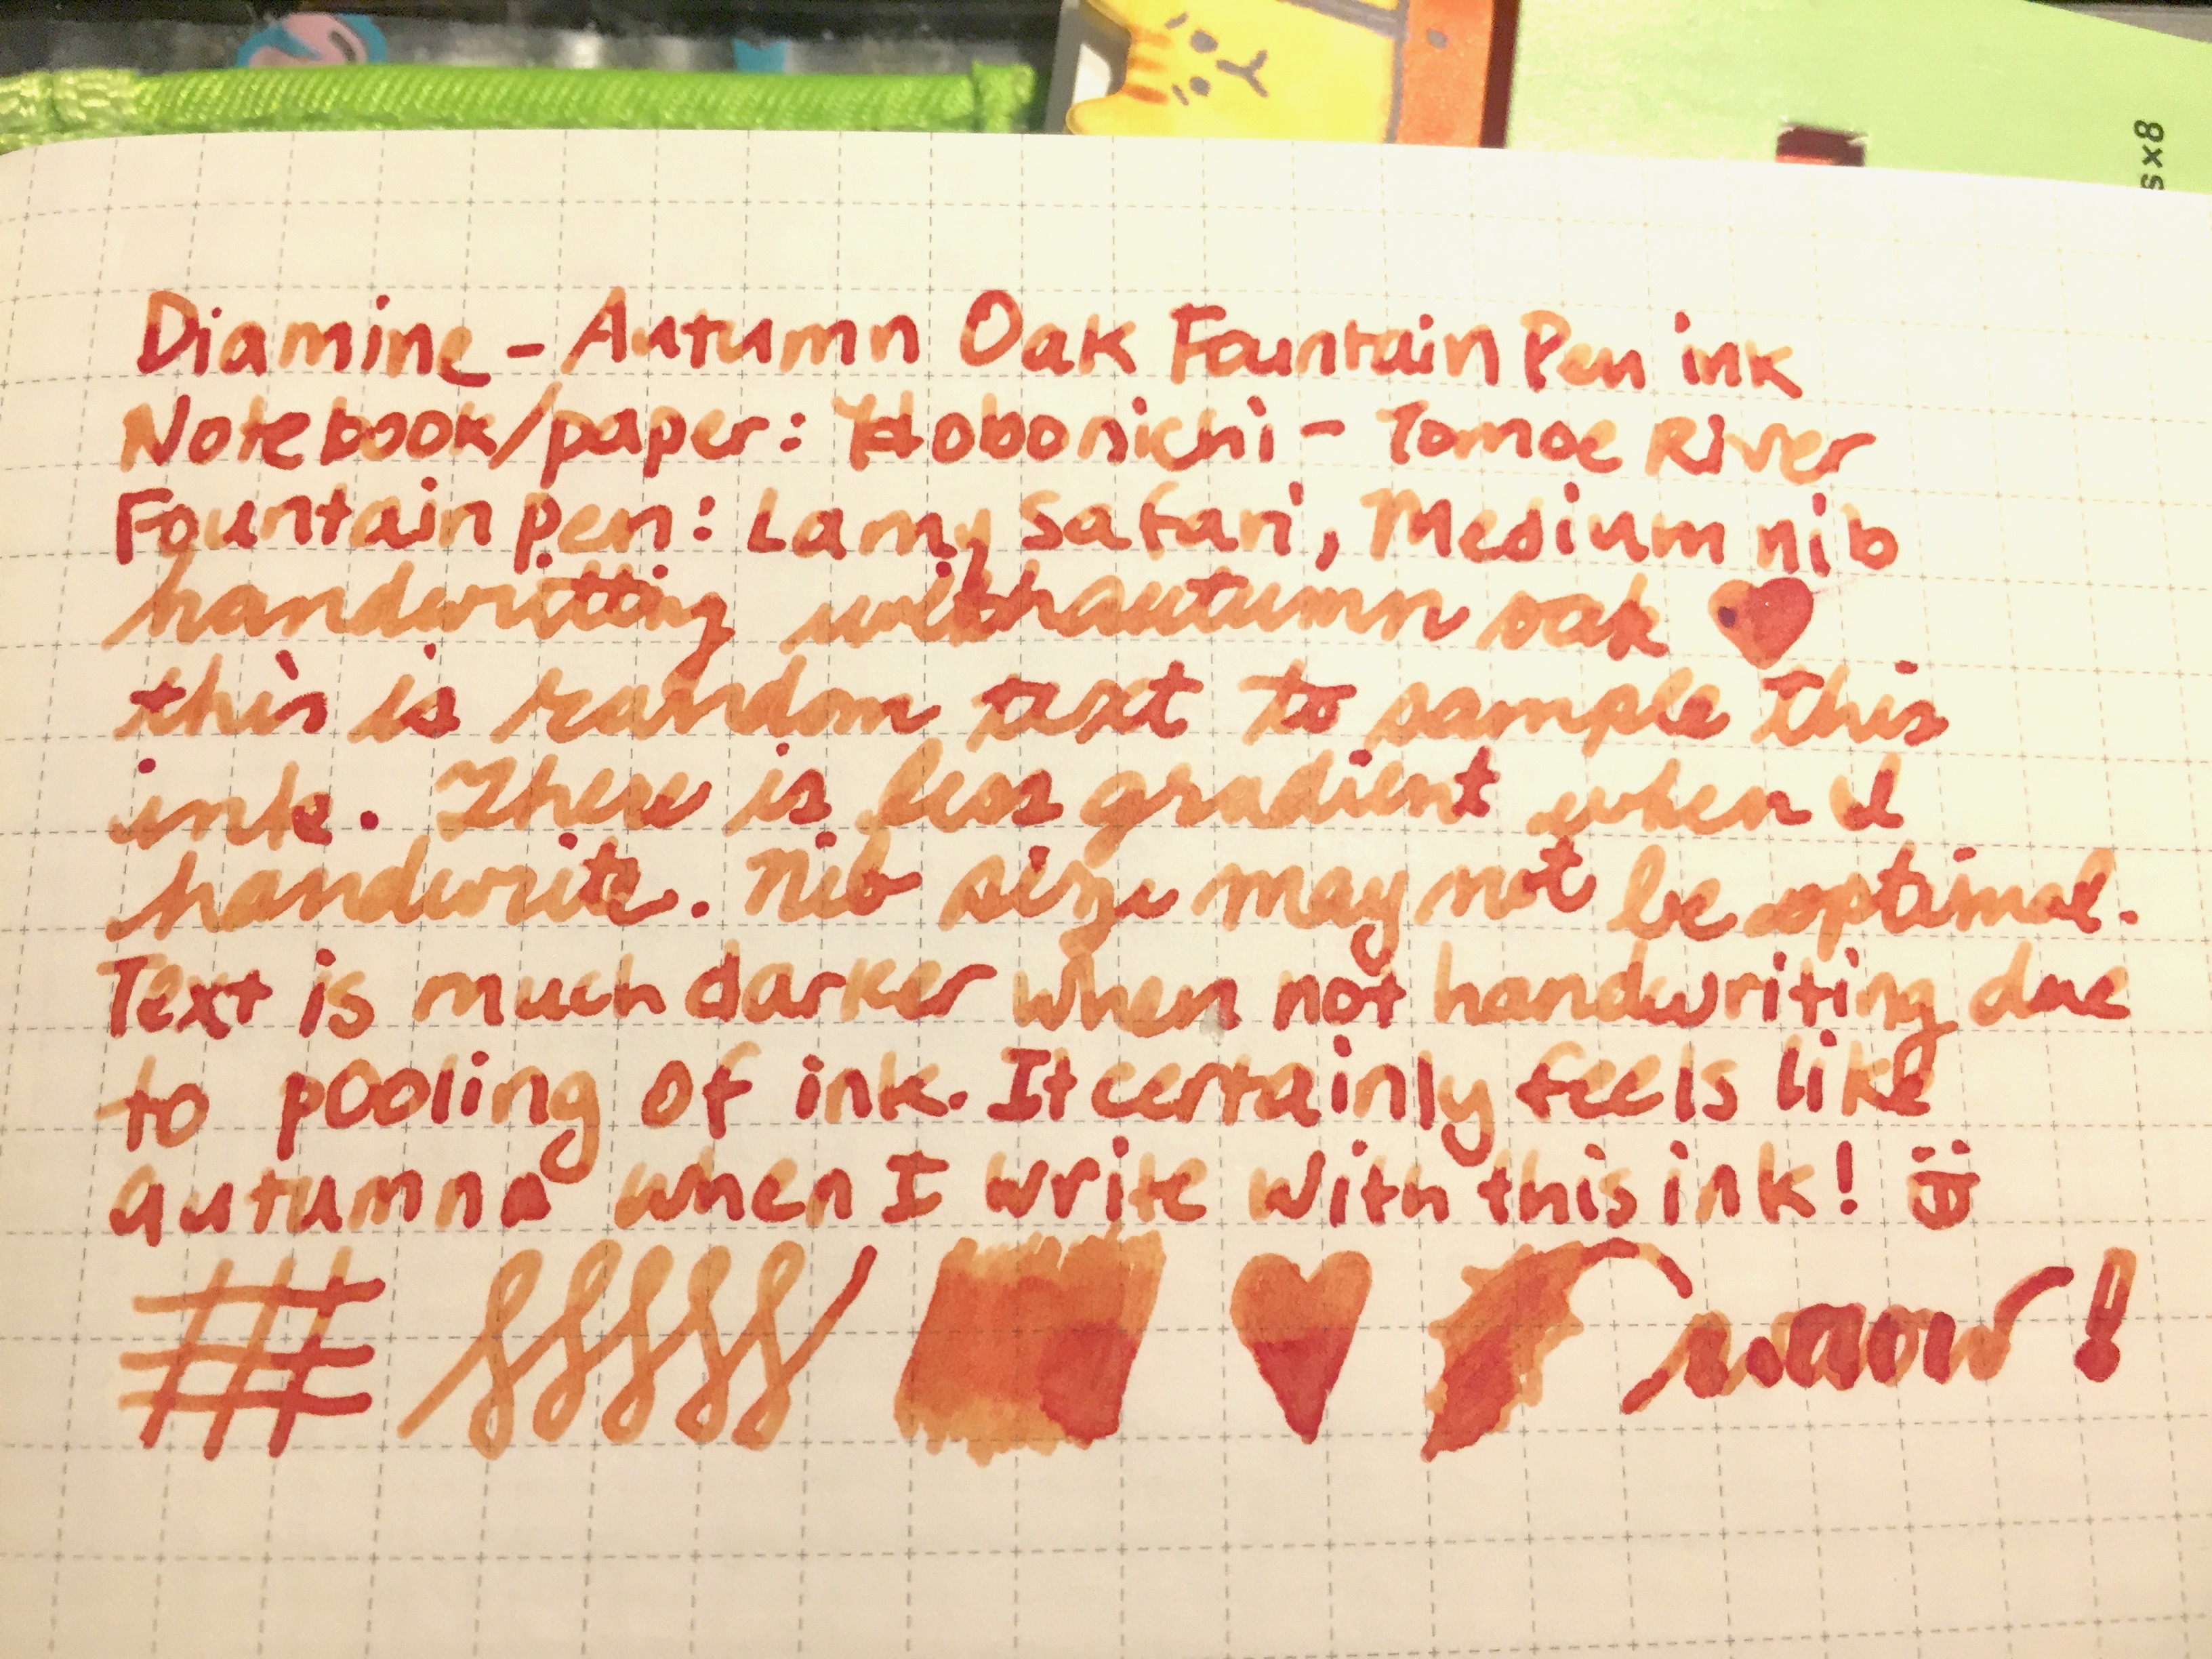 sx8
Diamine - Autumn Oak Fountain Pen ink
Notebook/paper: Hobonichi - Tomoe River
Fountain pen: Lamy Safari, Medium nib
handwritting with autumn oak ♥
this is random text to sample this
ink. There is less gradient when I
handwrite. Nib size may not be optimal.
Text is much darker when not handwriting due
to pooling of ink. It certainly feels like
autumn when I write with this ink!
# woow!